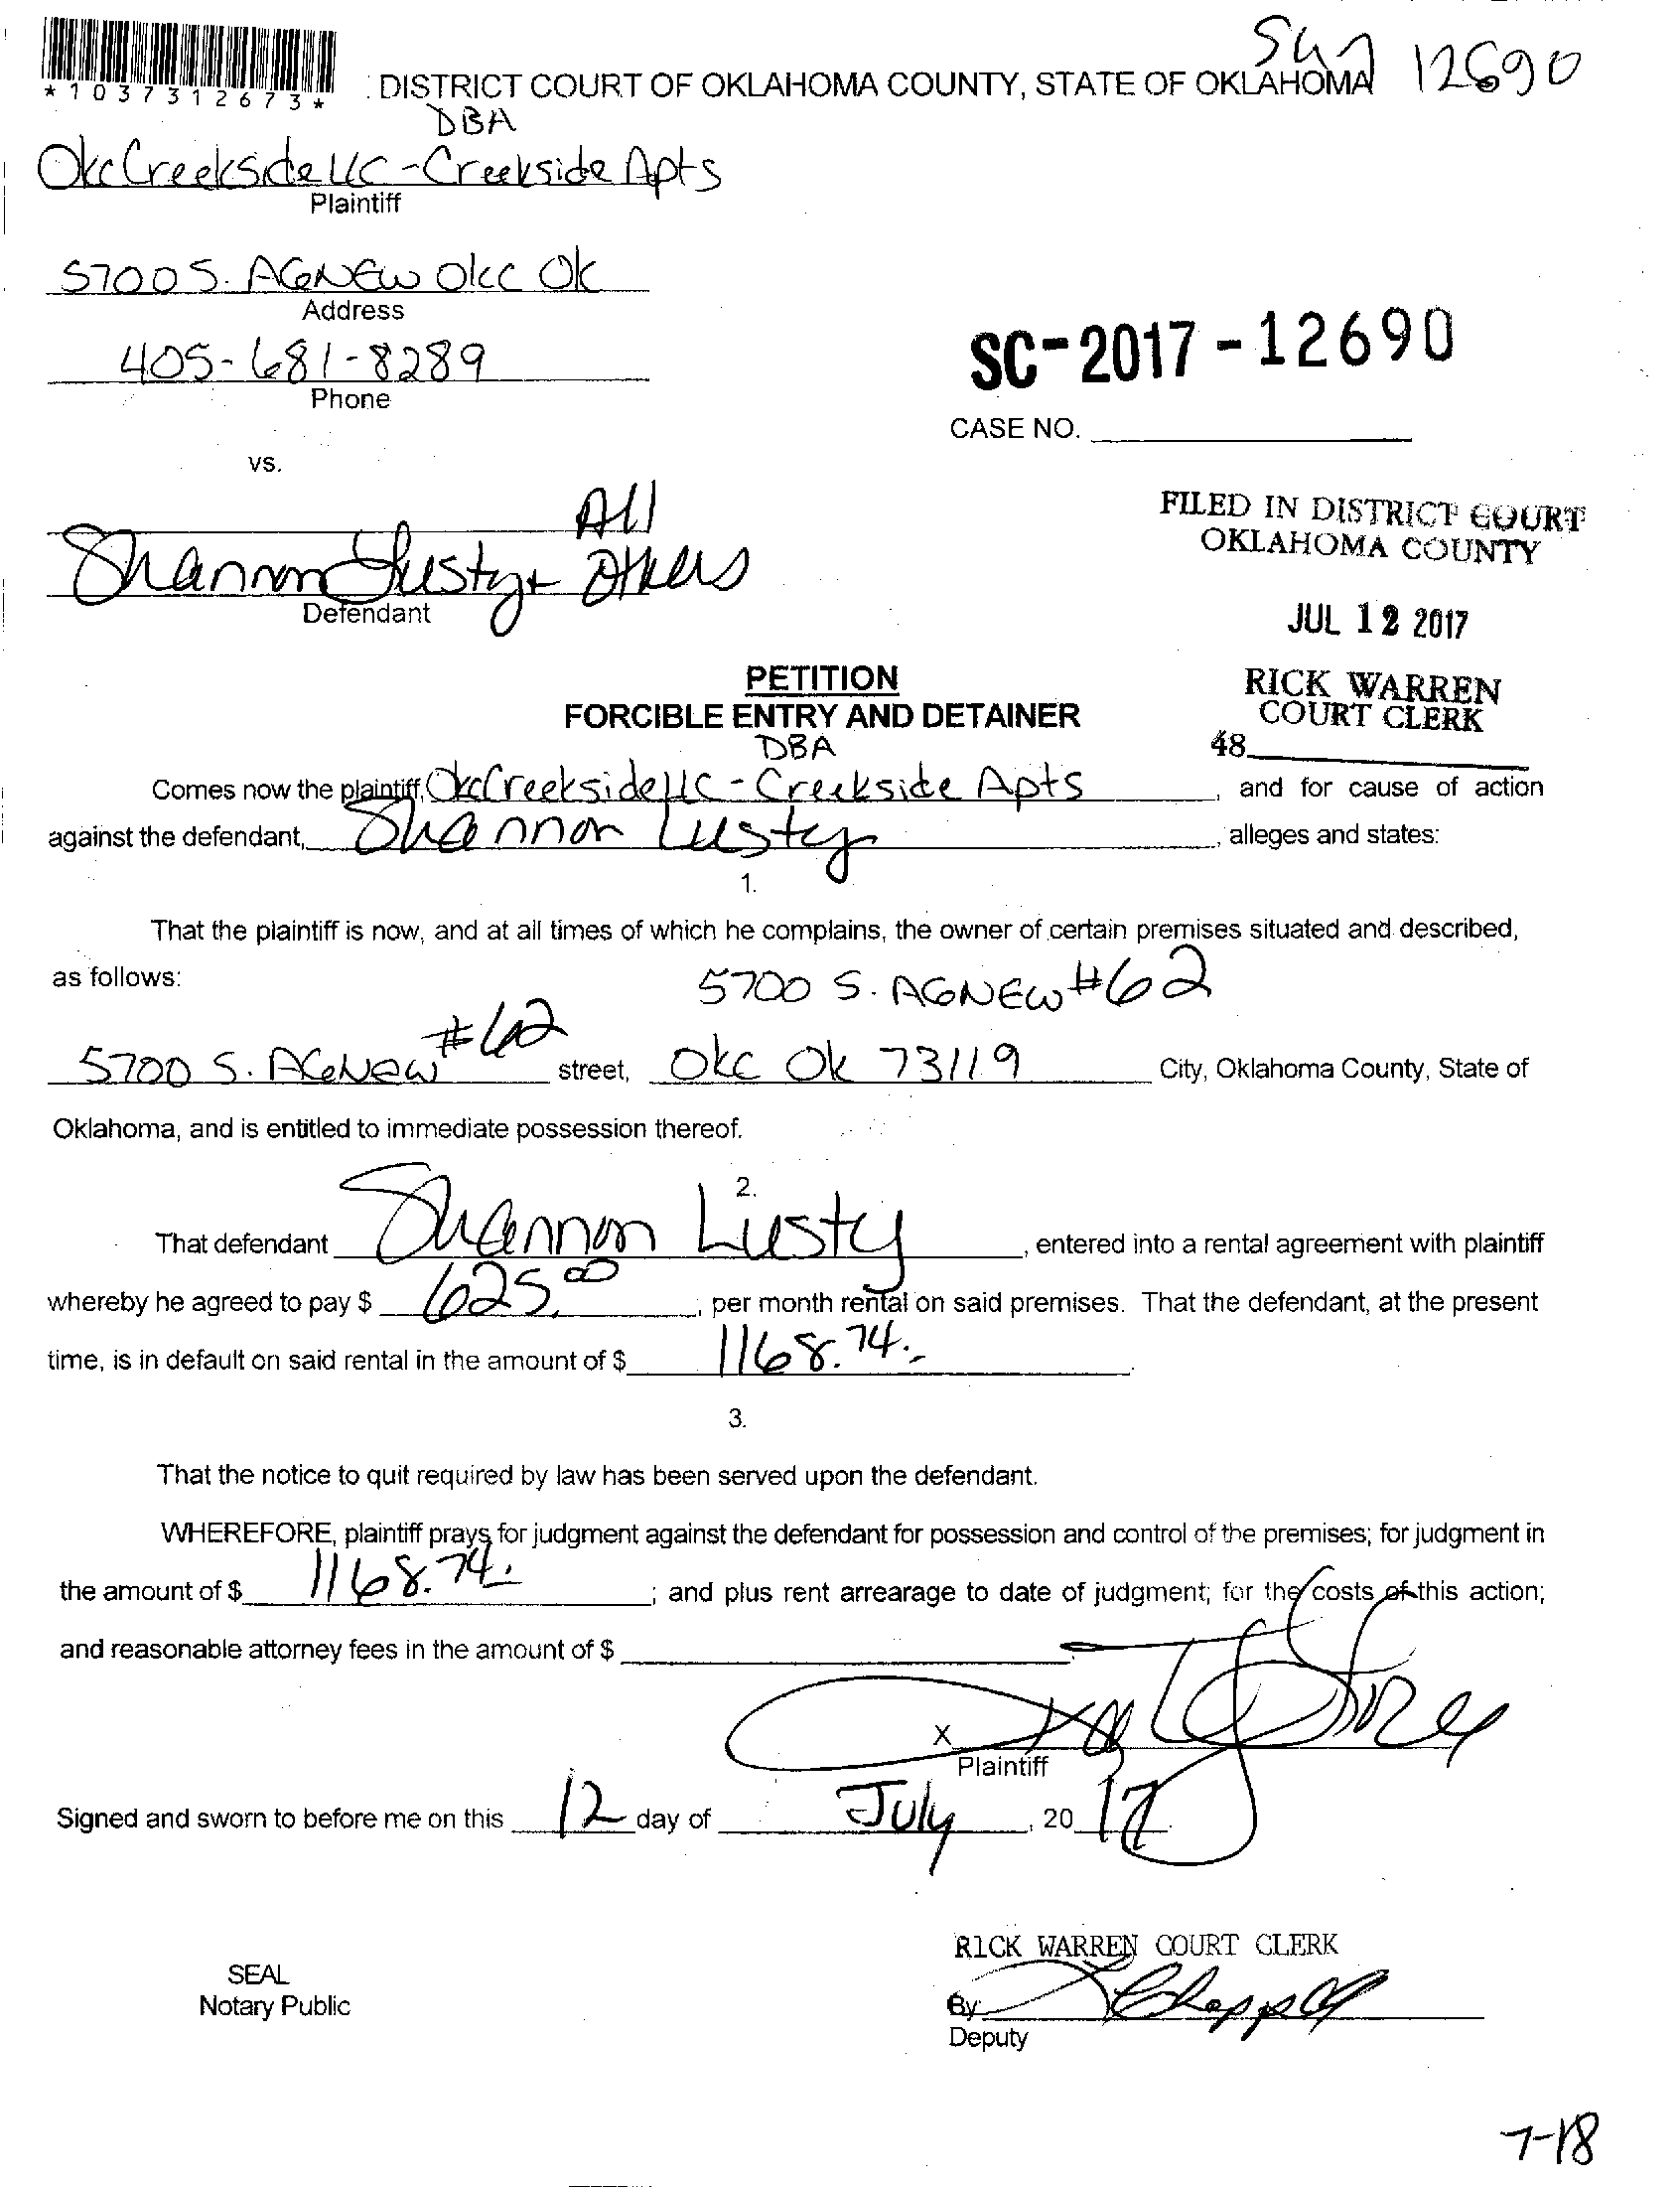 12690
*1037312673*
DISTRICT COURT OF OKLAHOMA COUNTY, STATE OF OKLAHOMA
DBA
Okc Creekside LLC - Creekside Apts
Plaintiff
5700 S. AGNEW OKC OK
Address
405-681-8289
Phone
SC-2017-12690
CASE NO.
vs.
All
Shannon Lusty + Others
Defendant
FILED IN DISTRICT COURT
OKLAHOMA COUNTY
JUL 12 2017
RICK WARREN
COURT CLERK
48
PETITION
FORCIBLE ENTRY AND DETAINER
DBA
Comes now the plaintiff, Okc Creekside LLC - Creekside Apts, and for cause of action
against the defendant, Shannon Lusty, alleges and states:
1.
That the plaintiff is now, and at all times of which he complains, the owner of certain premises situated and described,
as follows: 5700 S. AGNEW #62
5700 S. AGNEW #62 street, OKC OK 73119 City, Oklahoma County, State of
Oklahoma, and is entitled to immediate possession thereof.
2.
That defendant Shannon Lusty, entered into a rental agreement with plaintiff
whereby he agreed to pay $ 625.00, per month rental on said premises. That the defendant, at the present
time, is in default on said rental in the amount of $ 1168.74.
3.
That the notice to quit required by law has been served upon the defendant.
WHEREFORE, plaintiff prays for judgment against the defendant for possession and control of the premises; for judgment in
the amount of $ 1168.74; and plus rent arrearage to date of judgment; for the costs of this action;
and reasonable attorney fees in the amount of $
X
Plaintiff
Signed and sworn to before me on this 12 day of July, 20 17.
RICK WARREN COURT CLERK
SEAL
Notary Public
By
Deputy
7-18